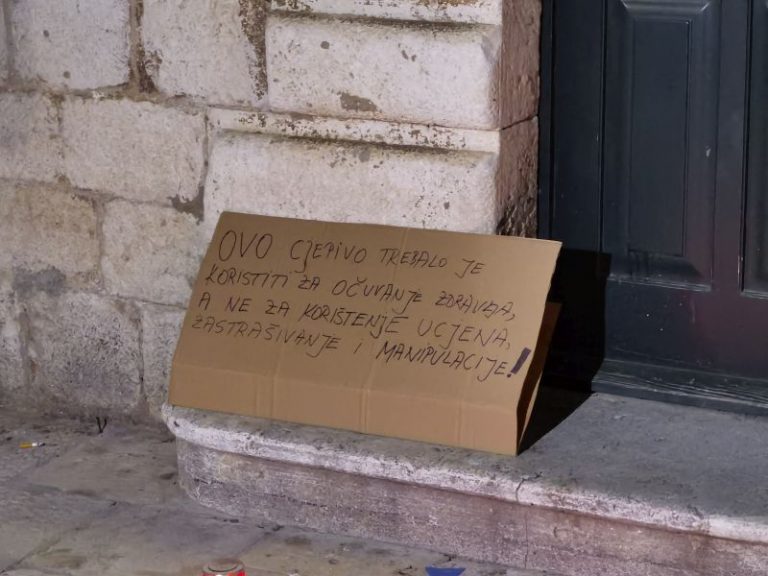 OVO CJEPIVO TREBALO JE
KORISTITI ZA OČUVANJE ZDRAVLJA,
A NE ZA KORIŠTENJE UCJENA,
ZASTRAŠIVANJE I MANIPULACIJE!